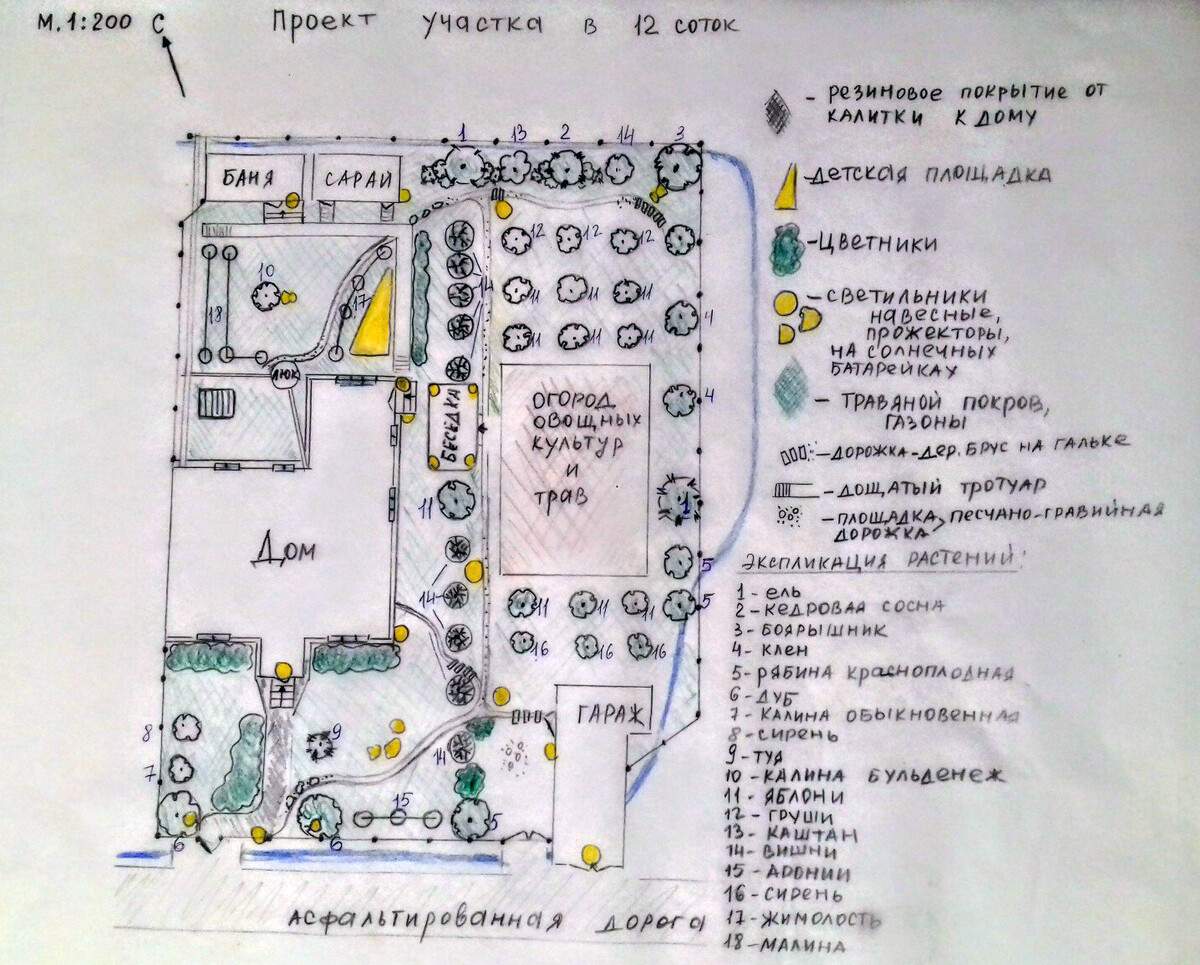 М. 1:200 С Проект участка в 12 соток
- резиновое покрытие от
калитки к дому
- детская площадка
- Цветники
- светильники
навесные,
прожекторы,
на солнечных
батарейках
- травяной покров,
газоны
- дорожка-дер. брус на гальке
- дощатый тротуар
- площадка, песчано-гравийная
дорожка
Экспликация растений:
1 - ель
2 - кедровая сосна
3 - боярышник
4 - клен
5 - рябина красноплодная
6 - дуб
7 - калина обыкновенная
8 - сирень
9 - туя
10 - калина бульденеж
11 - яблони
12 - груши
13 - каштан
14 - вишни
15 - аронии
16 - сирень
17 - жимолость
18 - малина
1 13 2 14 3
БАНЯ САРАЙ
12 12 12
10
14
11 11 11
18 17
4
11 11 11
ЛЮК
4
БЕСЕДКА
ОГОРОД
ОВОЩНЫХ
КУЛЬТУР
И
ТРАВ
11
1
ДОМ
5
14
11 11 11 5
16 16 16
ГАРАЖ
8
9
14
7
15
5
6 6
Асфальтированная дорога